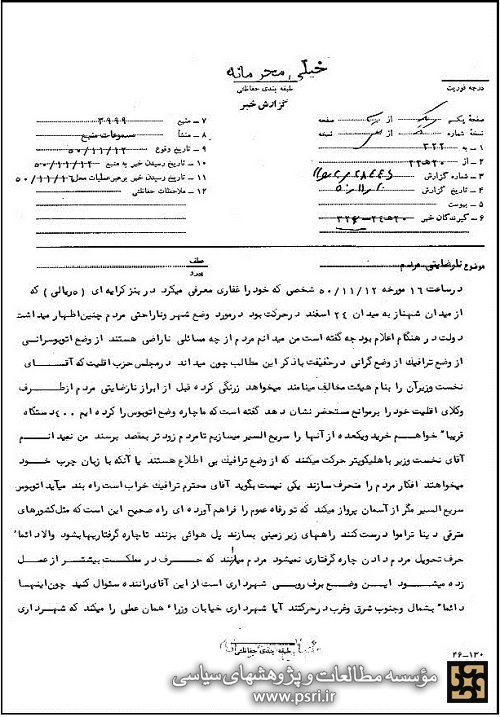 خیلی محرمانه
طبقه بندی حفاظتی
گزارش خبر
درجه فوریت
صفحه یک از صفحه
نسخه شماره از نسخه
۱ – به ۳۲۲
۲ – از ۲۰ ه ۲۲
۳ – شماره گزارش
۴ – تاریخ گزارش
۵ – پیوست
۶ – گیرندگان خبر
۷ – منبع ۳۹۹۹
۸ – منشأ مسموعات منبع
۹ – تاریخ وقوع ۵۰/۱۱/۱۲
۱۰ – تاریخ رسیدن خبر به منبع ۵۰/۱۱/۱۲
۱۱ – تاریخ رسیدن خبر برهبر عملیات محل ۵۰/۱۱/۱۶
۱۲ – ملاحظات حفاظتی
موضوع نارضایتی مردم
عطف
پیرو
در ساعت ۱۶ مورخه ۵۰/۱۱/۱۲ شخصی که خود را غفاری معرفی میکرد در بنز کرایه ای (۵ریالی) که
از میدان شهناز به میدان ۲۴ اسفند در حرکت بود در مورد وضع شهر و ناراحتی مردم چنین اظهار میداشت
دولت در هنگام اعلام بودجه گفته است من میدانم مردم از چه مسائلی ناراضی هستند از وضع اتوبوسرانی
از وضع ترافیک از وضع گرانی در حقیقت با ذکر این مطالب چون میداند در مجلس حزب اقلیت که آقـــای
نخست وزیر آن را بنام هیئت مخالف مینامند میخواهد زرنگی کرده قبل از ابراز نارضایتی مردم از طرف
وکلای اقلیت خود را بر موانع مستحضر نشان دهد گفته است که ما چاره وضع اتوبوس را کرده ایم ۴۰۰ دستگاه
قریبا" خواهیم خرید و یکعده از آنها را سریع السیر میسازیم تا مردم زودتر بمقصد برسند من نمیدانم
آقای نخست وزیر با هلیکوپتر حرکت میکنند که از وضع ترافیک بی اطلاع هستند یا آنکه با زبان چرب خود
میخواهند افکار مردم را منحرف سازند یکی نیست بگوید آقای محترم ترافیک خراب است راه بند میآید اتوبوس
سریع السیر مگر از آسمان پرواز میکند که تو رفاه عموم را فراهم آورده ای راه صحیح این است که مثل کشورهای
مترقی دنیا تراموا درست کنند راههای زیر زمینی بسازند پل هوائی بزنند تا چاره گرفتاریها بشود والا دائما"
حرف تحویل مردم دادن چاره گرفتاری نمیشود مردم میدانند که حــرف در مملکت بیشتــر از عمل
زده میشــود ایــن وضـع برف روبــی شهرداری است از این آقای راننده سئوال کنید چون اینهــا
دائما" بشمال و جنوب شرق و غرب در حرکتند آیا شهرداری خیابان وزراء همان عملی را میکند که شهرداری
طبقه بندی حفاظتی
۲۶–۱۳۰
مؤسسه مطالعات و پژوهشهای سیاسی
www.psri.ir